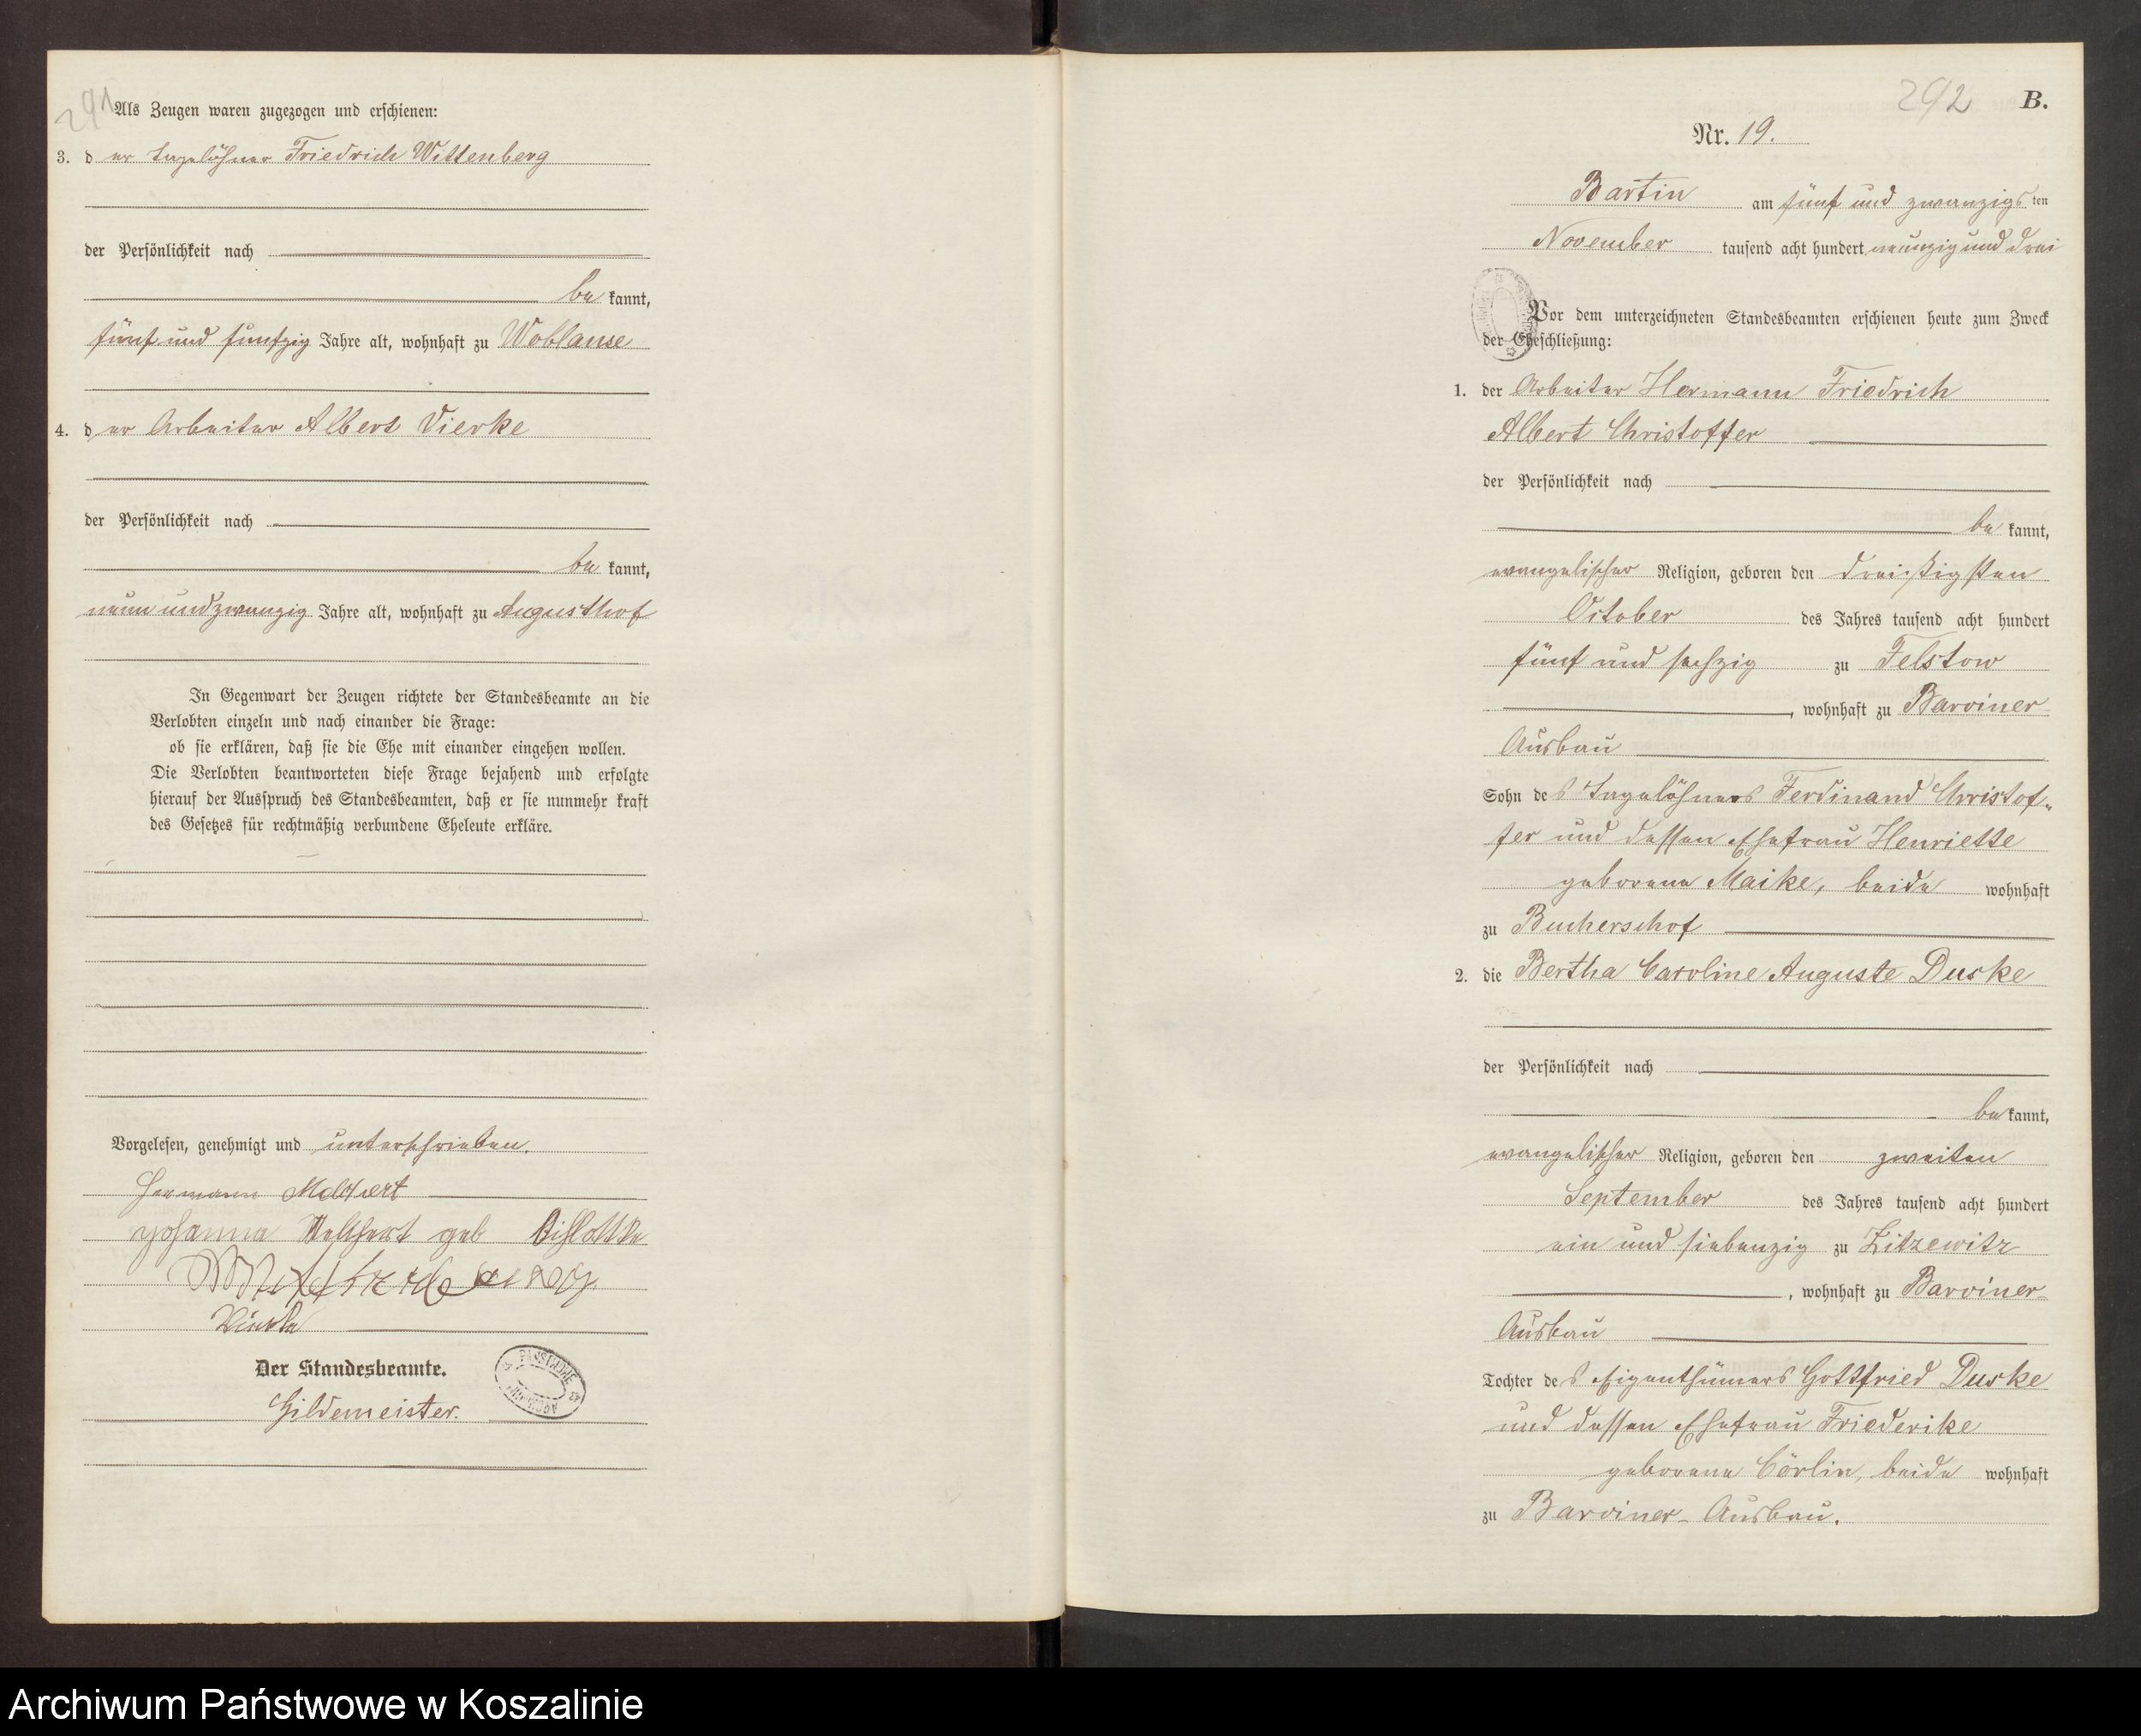 291
Als Zeugen waren zugezogen und erschienen:
3. der Tagelöhner Friedrich Wittenberg
der Persönlichkeit nach
bekannt,
fünf und funfzig Jahre alt, wohnhaft zu Woblanse
4. der Arbeiter Albert Vierke
der Persönlichkeit nach
bekannt,
neun und zwanzig Jahre alt, wohnhaft zu Augusthof
In Gegenwart der Zeugen richtete der Standesbeamte an die
Verlobten einzeln und nach einander die Frage:
ob sie erklären, daß sie die Ehe mit einander eingehen wollen.
Die Verlobten beantworteten diese Frage bejahend und erfolgte
hierauf der Ausspruch des Standesbeamten, daß er sie nunmehr kraft
des Gesetzes für rechtmäßig verbundene Eheleute erkläre.
Vorgelesen, genehmigt und unterschrieben.
Hermann
Johanna geb
Der Standesbeamte.
Gildemeister.
292 B.
Nr. 19.
Bartin am fünf und zwanzigsten
November tausend acht hundert neunzig und drei
Vor dem unterzeichneten Standesbeamten erschienen heute zum Zweck
der Eheschließung:
1. der Arbeiter Hermann Friedrich
Albert Christoffer
der Persönlichkeit nach
bekannt,
evangelischer Religion, geboren den dreißigsten
October des Jahres tausend acht hundert
fünf und sechzig zu Felstow
, wohnhaft zu Barviner-
Ausbau
Sohn des Tagelöhners Ferdinand Christof-
fer und dessen Ehefrau Henriette
geborene Maike, beide wohnhaft
zu Buchershof
2. die Bertha Caroline Auguste Duske
der Persönlichkeit nach
bekannt,
evangelischer Religion, geboren den zweiten
September des Jahres tausend acht hundert
ein und siebenzig zu Zitzewitz
, wohnhaft zu Barviner-
Ausbau
Tochter des Eigenthümers Gottfried Duske
und dessen Ehefrau Friederike
geborene Cörlin, beide wohnhaft
zu Barviner-Ausbau.
Archiwum Państwowe w Koszalinie